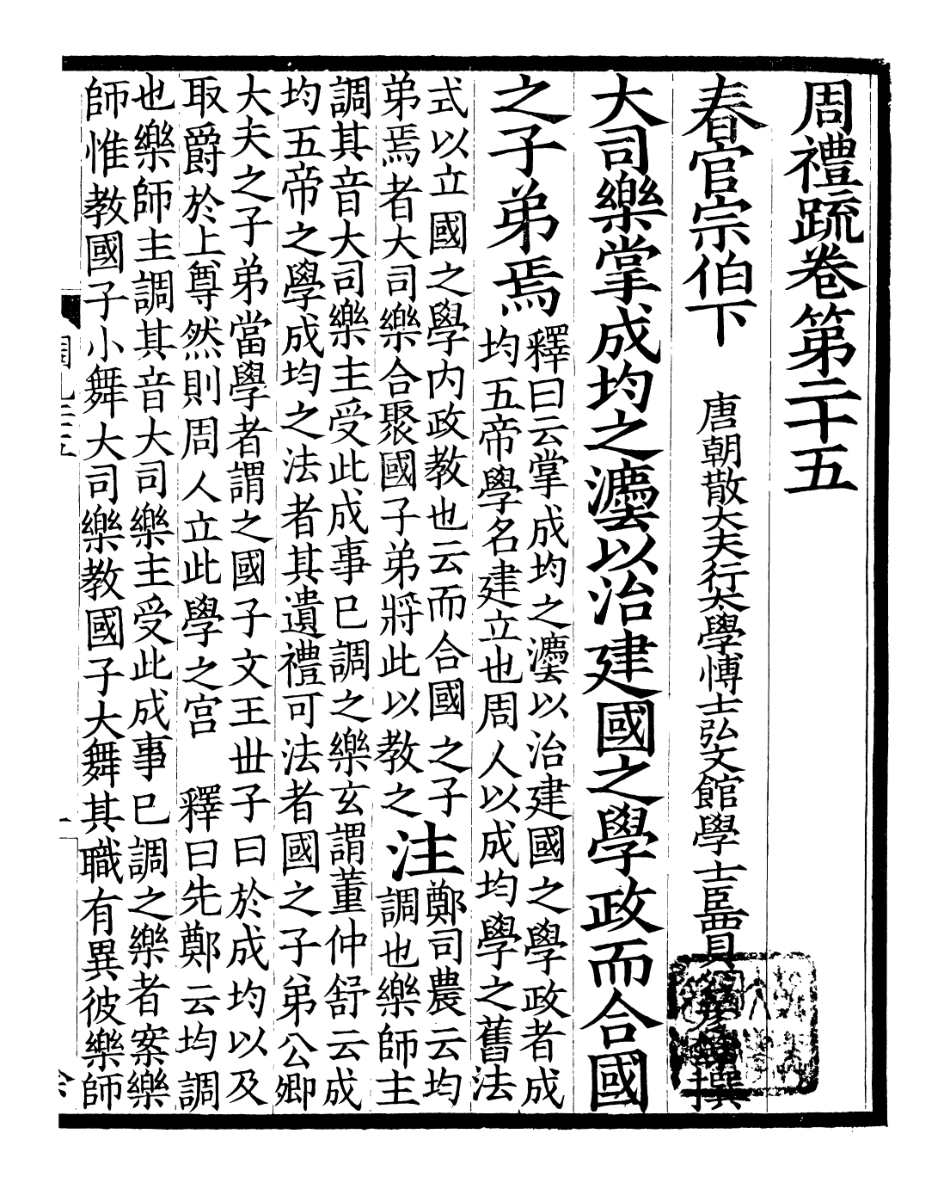 周禮疏卷第二十五
春官宗伯下　唐朝散大夫行太學博士弘文館學士臣賈公彥等撰
大司樂掌成均之灋以治建國之學政而合國
之子弟焉
釋曰云掌成均之灋以治建國之學政者成
均五帝學名建立也周人以成均學之舊法
式以立國之學内政教也云而合國之子
弟焉者大司樂合聚國子弟將此以教之
注
鄭司農云均
調也樂師主
調其音大司樂主受此成事已調之樂玄謂董仲舒云成
均五帝之學成均之法者其遺禮可法者國之子弟公卿
大夫之子弟當學者謂之國子文王世子曰於成均以及
取爵於上尊然則周人立此學之宫　釋曰先鄭云均調
也樂師主調其音大司樂主受此成事已調之樂者案樂
師惟教國子小舞大司樂教國子大舞其職有異彼樂師